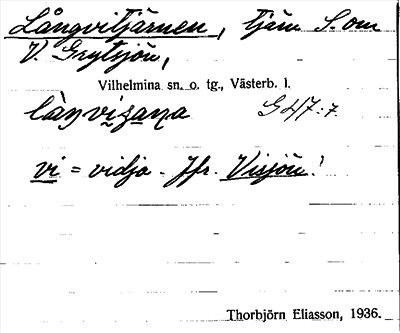 Långvitjärnen, tjärn S. om
V. Grytsjön,
Vilhelmina sn. o. tg., Västerb. l.
G 47:7.
vi = vidja. Jfr. Visjön!
Thorbjörn Eliasson, 1936.